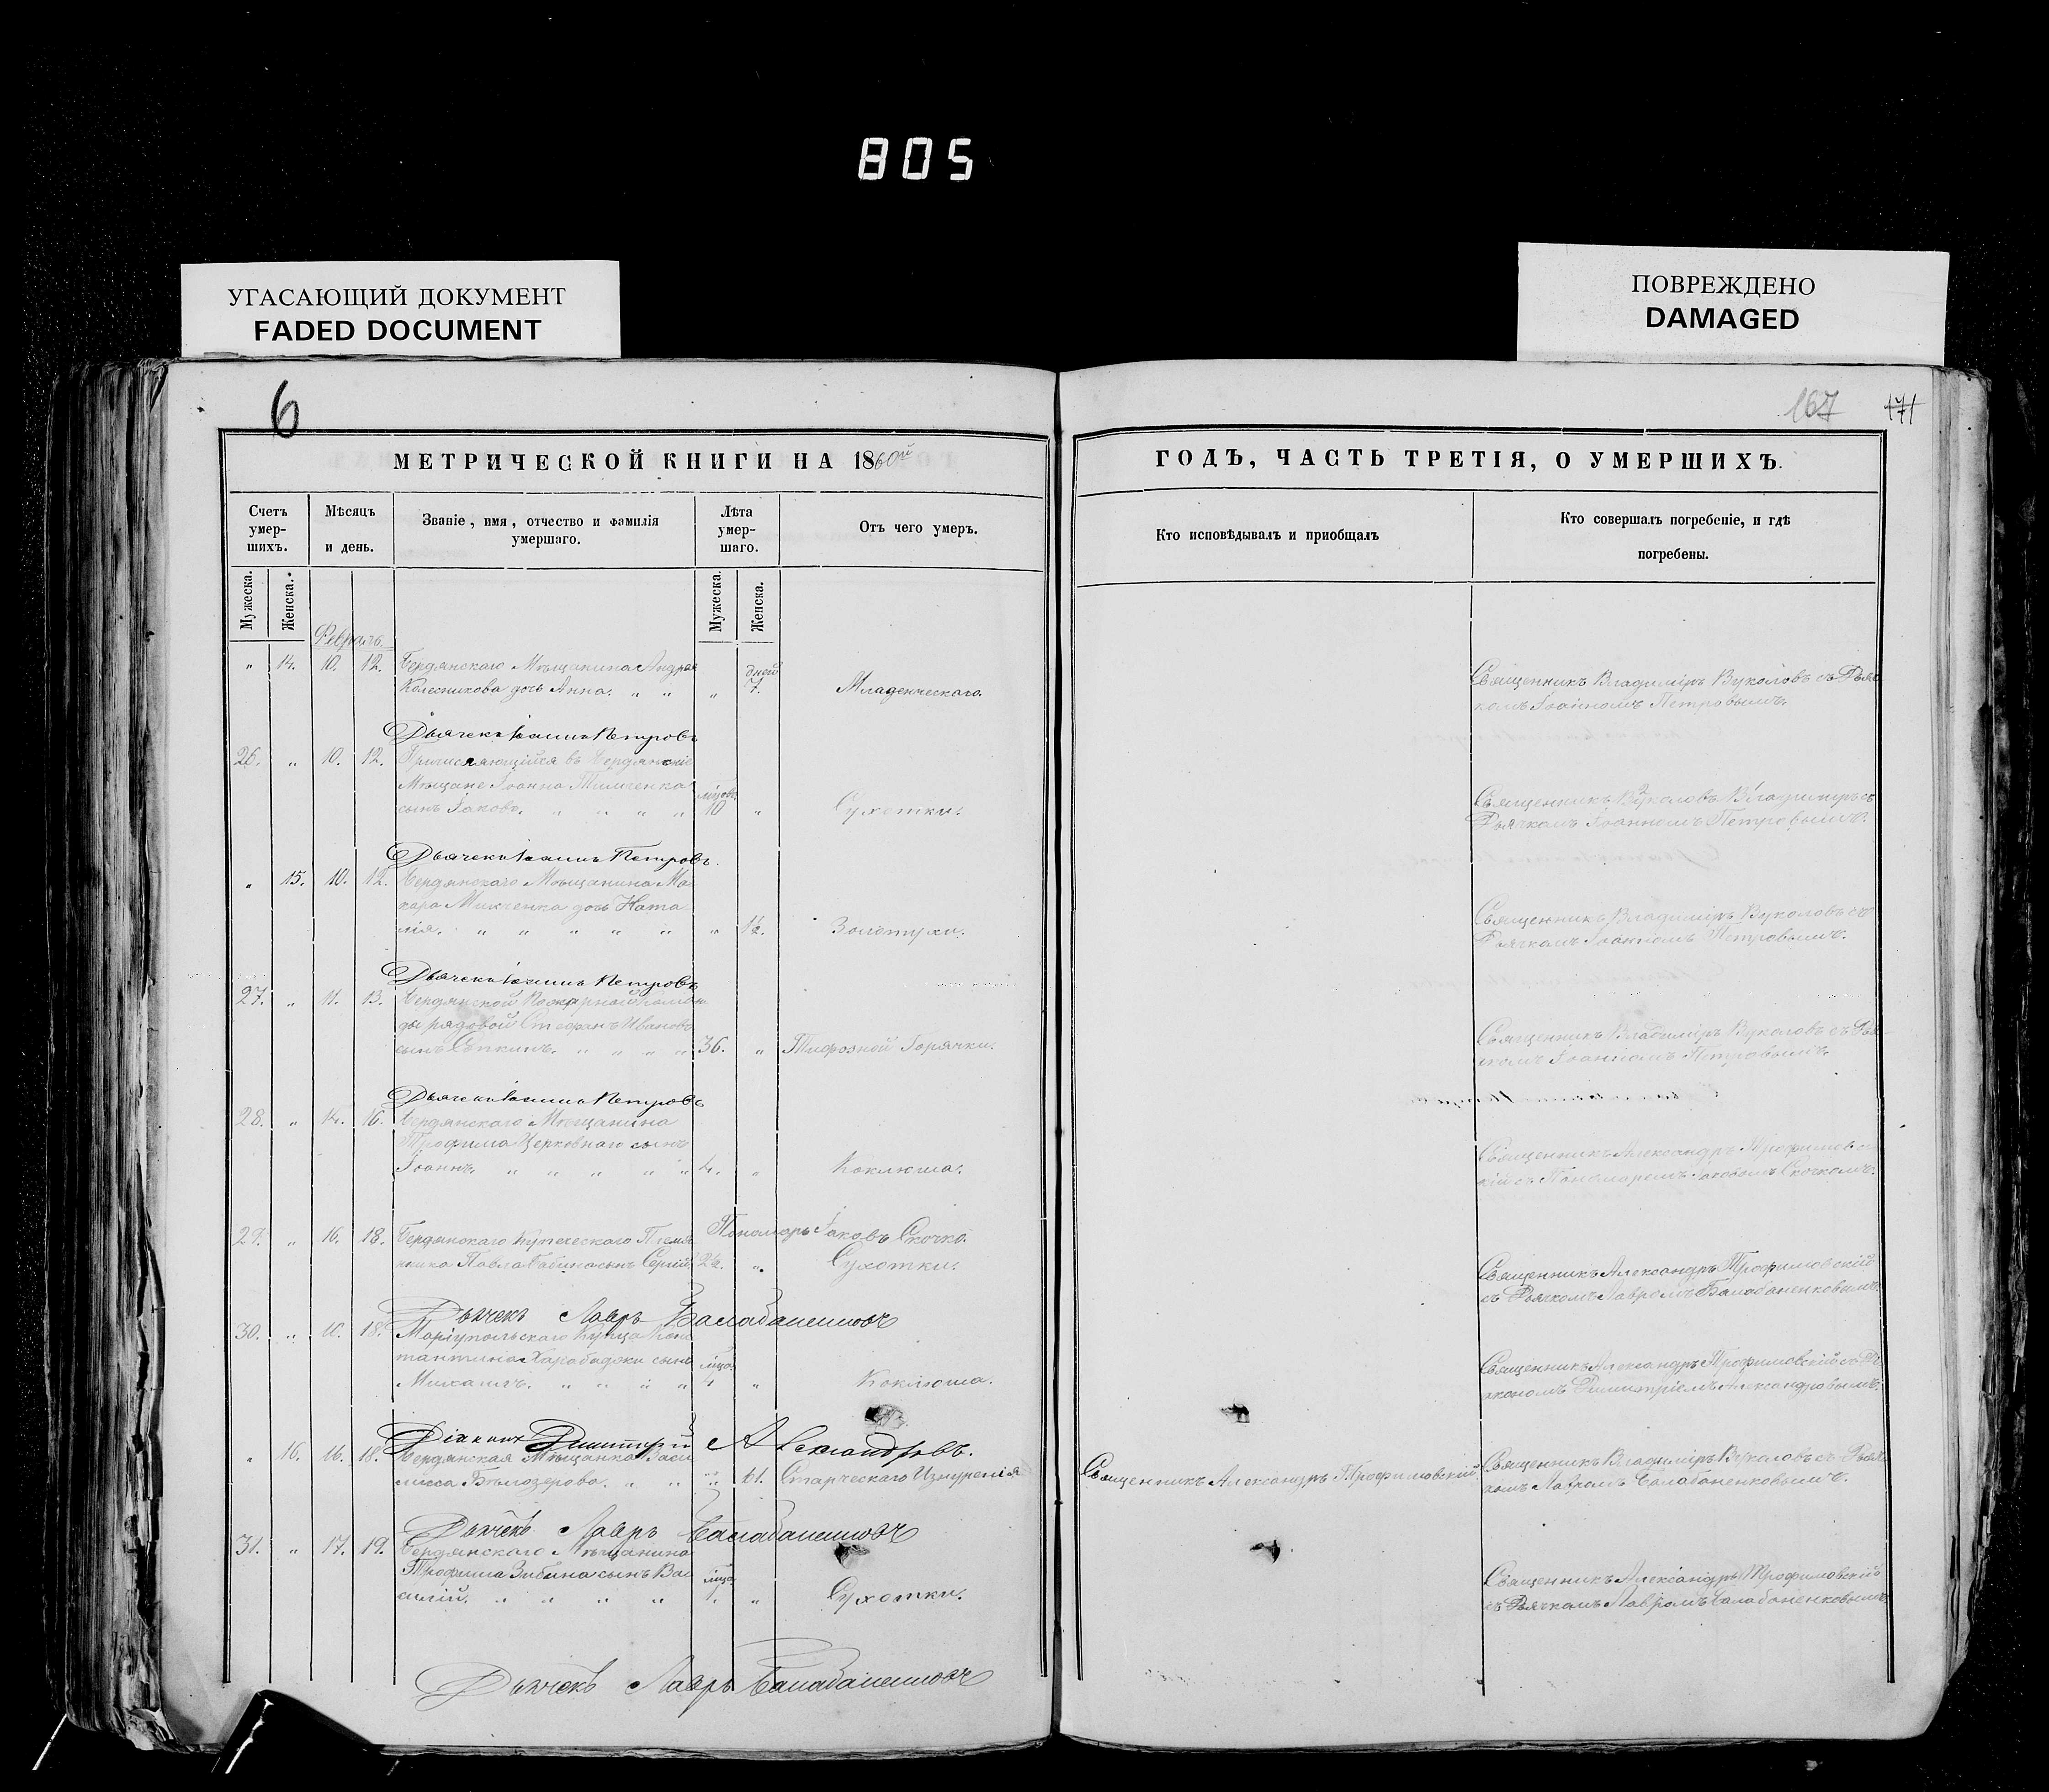 805
УГАСАЮЩИЙ ДОКУМЕНТ
FADED DOCUMENT
ПОВРЕЖДЕНО
DAMAGED
6
167 171
МЕТРИЧЕСКОЙ КНИГИ НА 1860й
ГОДЪ, ЧАСТЬ ТРЕТІЯ, О УМЕРШИХЪ.
Счетъ умер-шихъ.
Мѣсяцъ и день.
Званіе, имя, отчество и фамилія умершаго.
Лѣта умер-шаго.
Отъ чего умеръ.
Кто исповѣдывалъ и приобщалъ
Кто совершалъ погребеніе, и гдѣ погребены.
Мужеска. Женска.
Мужеска. Женска.
Февраль.
" 14. 10. 12. Бердянскаго Мѣщанина Андрея дней
Колесникова дочь Анна. " " " 7. Младенческаго
Священникъ Владиміръ Вуколовъ съ Дьяч
комъ Іоанномъ Петровымъ.
Дьячекъ Іоаннъ Петровъ
26. " 10. 12. Причисляющійся въ Бердянскіе
Мѣщане Іоанна Тимченка мѣсяцовъ
сынъ Іаковъ. " " " " 10 " Сухотки.
Священникъ Вуколовъ Владимиръ съ
Дьячкомъ Іоанномъ Петровымъ.
Дьячекъ Іоаннъ Петровъ.
" 15. 10. 12. Бердянскаго Мѣщанина Ма
кара дочь Ната
лія. " " " " " " 1½. Золотухи.
Священникъ Владиміръ Вуколовъ съ
Дьячкомъ Іоанномъ Петровымъ.
Дьячекъ Іоаннъ Петровъ
27. " 11. 13. Бердянской Пожарной Коман
ды рядовой Стефанъ Ивановъ
сынъ " " " " 36. " Тифозной Горячки.
Священникъ Владиміръ Вуколовъ съ Дья
чкомъ Іоанномъ Петровымъ.
Дьячекъ Іоаннъ Петровъ
28. " 14. 16. Бердянскаго Мѣщанина
Трофима Церковнаго сынъ
Іоаннъ. " " " " " 4. " Коклюша.
Священникъ Александръ Трофимовс
кій съ Пономаремъ Іаковомъ Скочкомъ.
Пономарь Іаковъ Скочко.
29. " 16. 18. Бердянскаго Купеческаго Племя
нника Павла сынъ Сергій 2½. " Сухотки.
Священникъ Александръ Трофимовскій
съ Дьячкомъ Лавромъ Балабаненковымъ.
Дьячекъ Лавръ Балабаненковъ
30. " 16. 18. Маріупольскаго Купца Конс
тантина Харабаджи сынъ мѣсяца
Михаилъ. " " " " 4 " Коклюша.
Священникъ Александръ Трофимовскій съ Ді
акономъ Димитріемъ Александровымъ.
Діаконъ Димитрій Александровъ.
" 16. 16. 18. Бердянская Мѣщанка Васи
лисса Бѣлозерова. " " " 61. Старческаго Изнуренія
Священникъ Александръ Трофимовскій
Священникъ Владиміръ Вуколовъ съ Дьяч
комъ Лавромъ Балабаненковымъ.
Дьячекъ Лавръ Балабаненковъ
31. " 17. 19. Бердянскаго Мѣщанина
Трофима Зибина сынъ Ва
силій. " " " " " Сухотки.
Священникъ Александръ Трофимовскій
съ Дьячкомъ Лавромъ Балабаненковымъ
Дьячекъ Лавръ Балабаненковъ